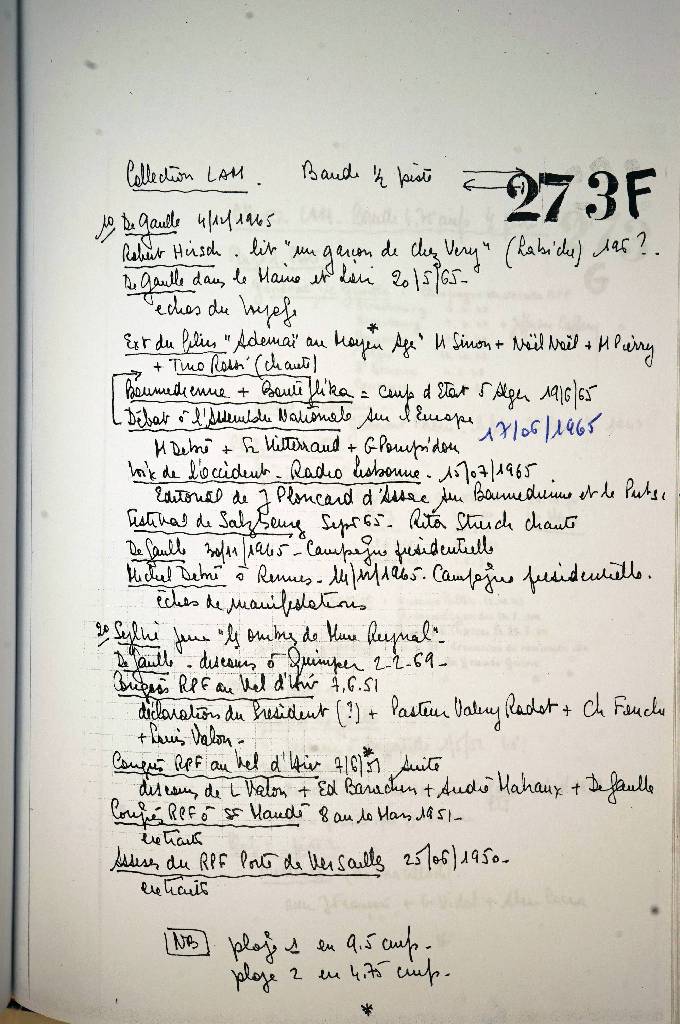 Collection LAM. Bande ½ piste 273F
1°/ De Gaulle 4/12/1965
Robert Hirsch. lit "un garçon de chez Very" (Labiche) 196?.
De Gaulle dans le Maine et Loir 20/5/65-
echos du voyage
Ext du film "Ademaï au Moyen Age" M Simon + Noël Noël + M Pierry
+ Tino Rossi (chante)
Boumedienne + Bouteflika = coup d'Etat à Alger 19/6/65
Débat à l'Assemblée Nationale sur l'Europe
17/06/1965
M Debré + F. Mitterrand + G Pompidou
Voix de l'occident. Radio Lisbonne. 15/07/1965
Editorial de J Ploncard d'Assac sur Boumedienne et le Putsc
Festival de Salzbourg Sept 65. Rita Streich chante
De Gaulle 30/11/1965 - Campagne présidentielle
Michel Debré à Rennes. 14/12/1965. Campagne présidentielle.
échos de manifestations
2°/ Sylvie joue "les ombres de Mme Reynal".
De Gaulle. discours à Quimper 2-2-69-
Congrès RPF au Vel d'Hiv 7.6.51
déclaration du President (?) + Pasteur Valery Radot + Ch Fouche
+ Louis Valon.-
Congrès RPF au Vel d'Hiv 7/6/51 suite
discours de L Valon + Ed Barachin + André Malraux + De Gaulle
Congrès RPF à St Mandé 8 au 10 Mars 1951-
extraits
Assises du RPF Porte de Versailles 25/06/1950-
extraits
NB plage 1 en 9.5 cm/s.
plage 2 en 4.75 cm/s.